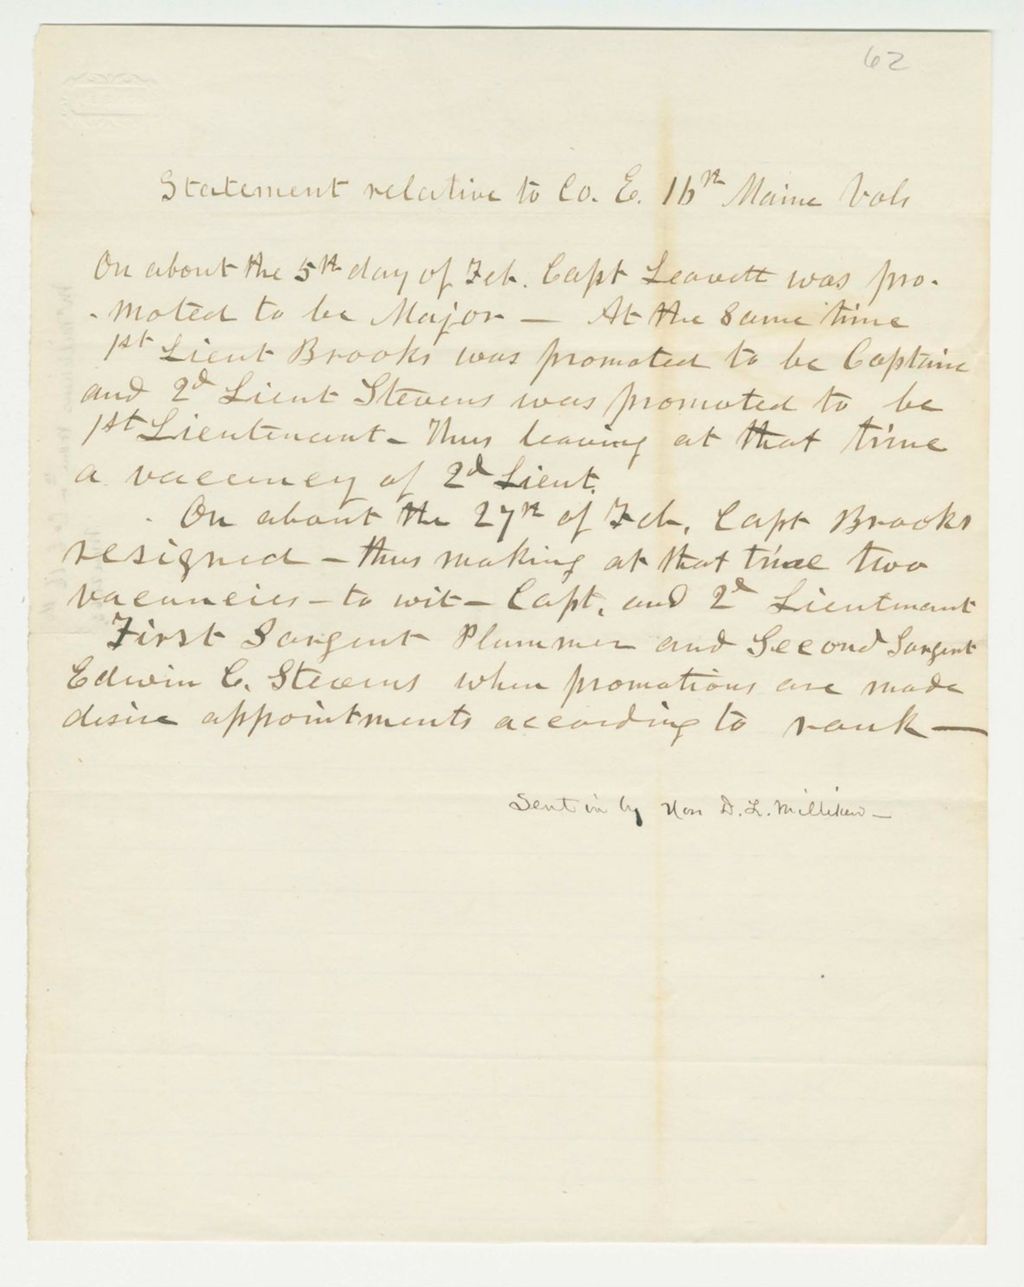 62
Statement relative to Co. E. 16th Maine Vols
On about the 5th day of Feb. Capt Leavett was pro-
-moted to be Major — At the Same time
1st Lieut Brooks was promoted to be Captain
and 2d Lieut Stevens was promoted to be
1st Lieutenant - Thus leaving at that time
a vacuncy of 2d Lieut.
On about the 27th of Feb. Capt Brooks
resigned - thus making at that time two
vacuncies - to wit - Capt, and 2d Lieutenant
First Sargent Plummer and Second Sargent
Edwin C. Stevens when promotions are made
desire appointments according to rank —
Sent in by Hon D. L. Milliken -